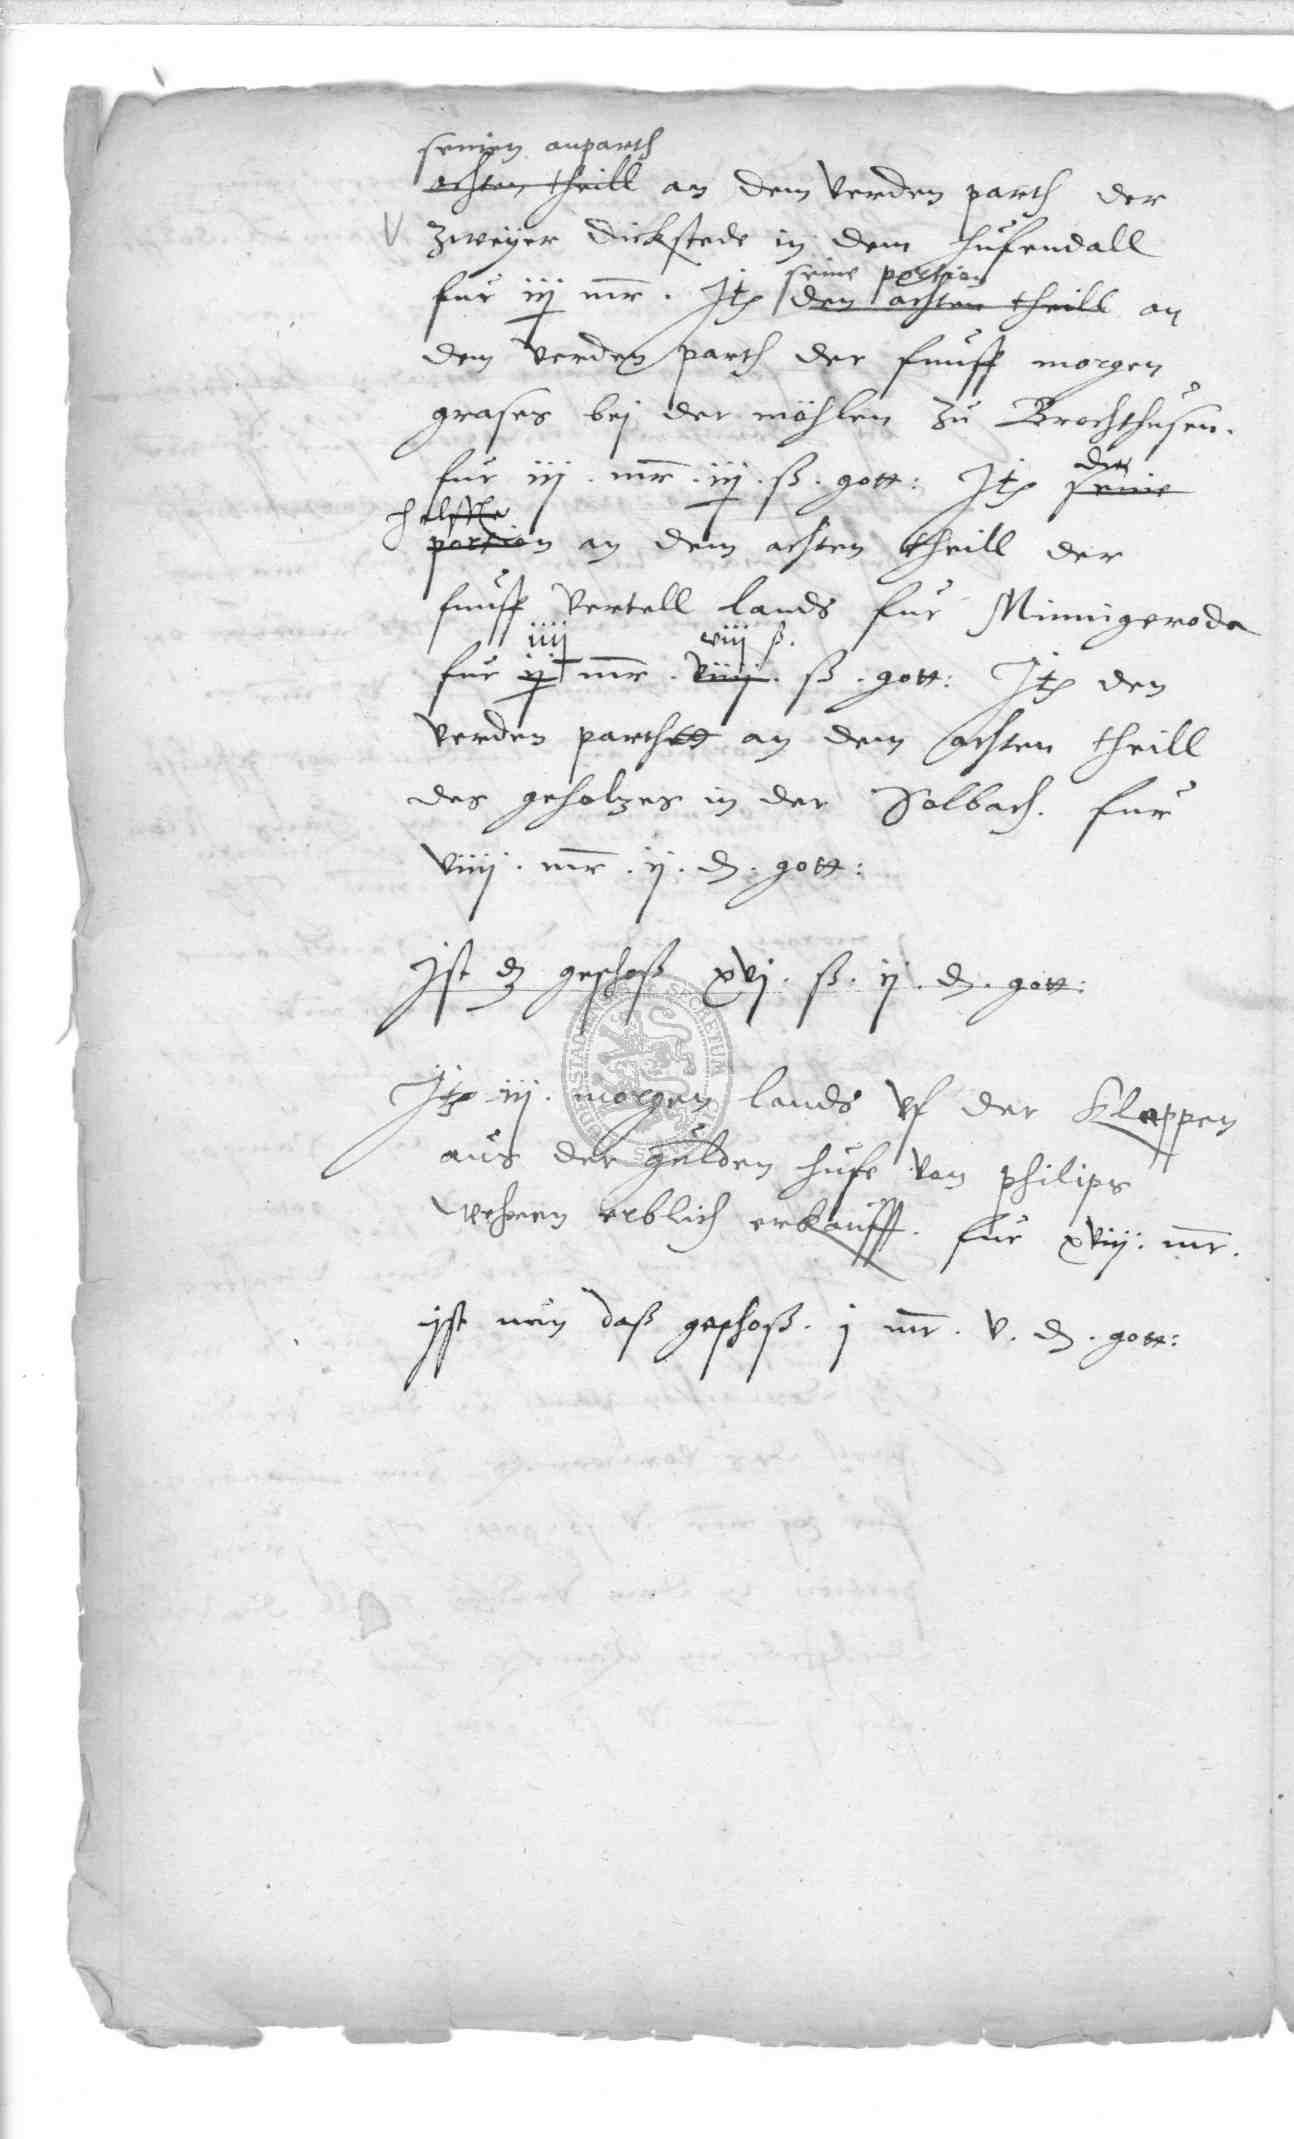 seinen anparth
achten theill an dem verden parth der
zweyer dickstede in dem hufendall
seine portion
fur iij mr. Jtem den achten theill an
dem verden parth der funff morgen
grases bej der möhlen zu Brochthusen.
die
fur iij. mr. iij. ß. gott: Jtem seine
helffte
portion an dem achten theill der
funff vertell lands fur Minnigeroda
iiij viij ß.
fur ij mr. viiij. ß. gott: Jtem den
verden parth an dem achten theill
des geholtzes in der Solbach. fur
viiij. mr. ij. d. gott:
Jst dz geschoß xvj. ß. ij. d. gott:
Jtem iij. morgen lands vf der Kleppen
aus der gulden hufe von philips
erblich erkaufft. fur xviij. mr.
Jst nun daß geschoß. j mr. v. d. gott: